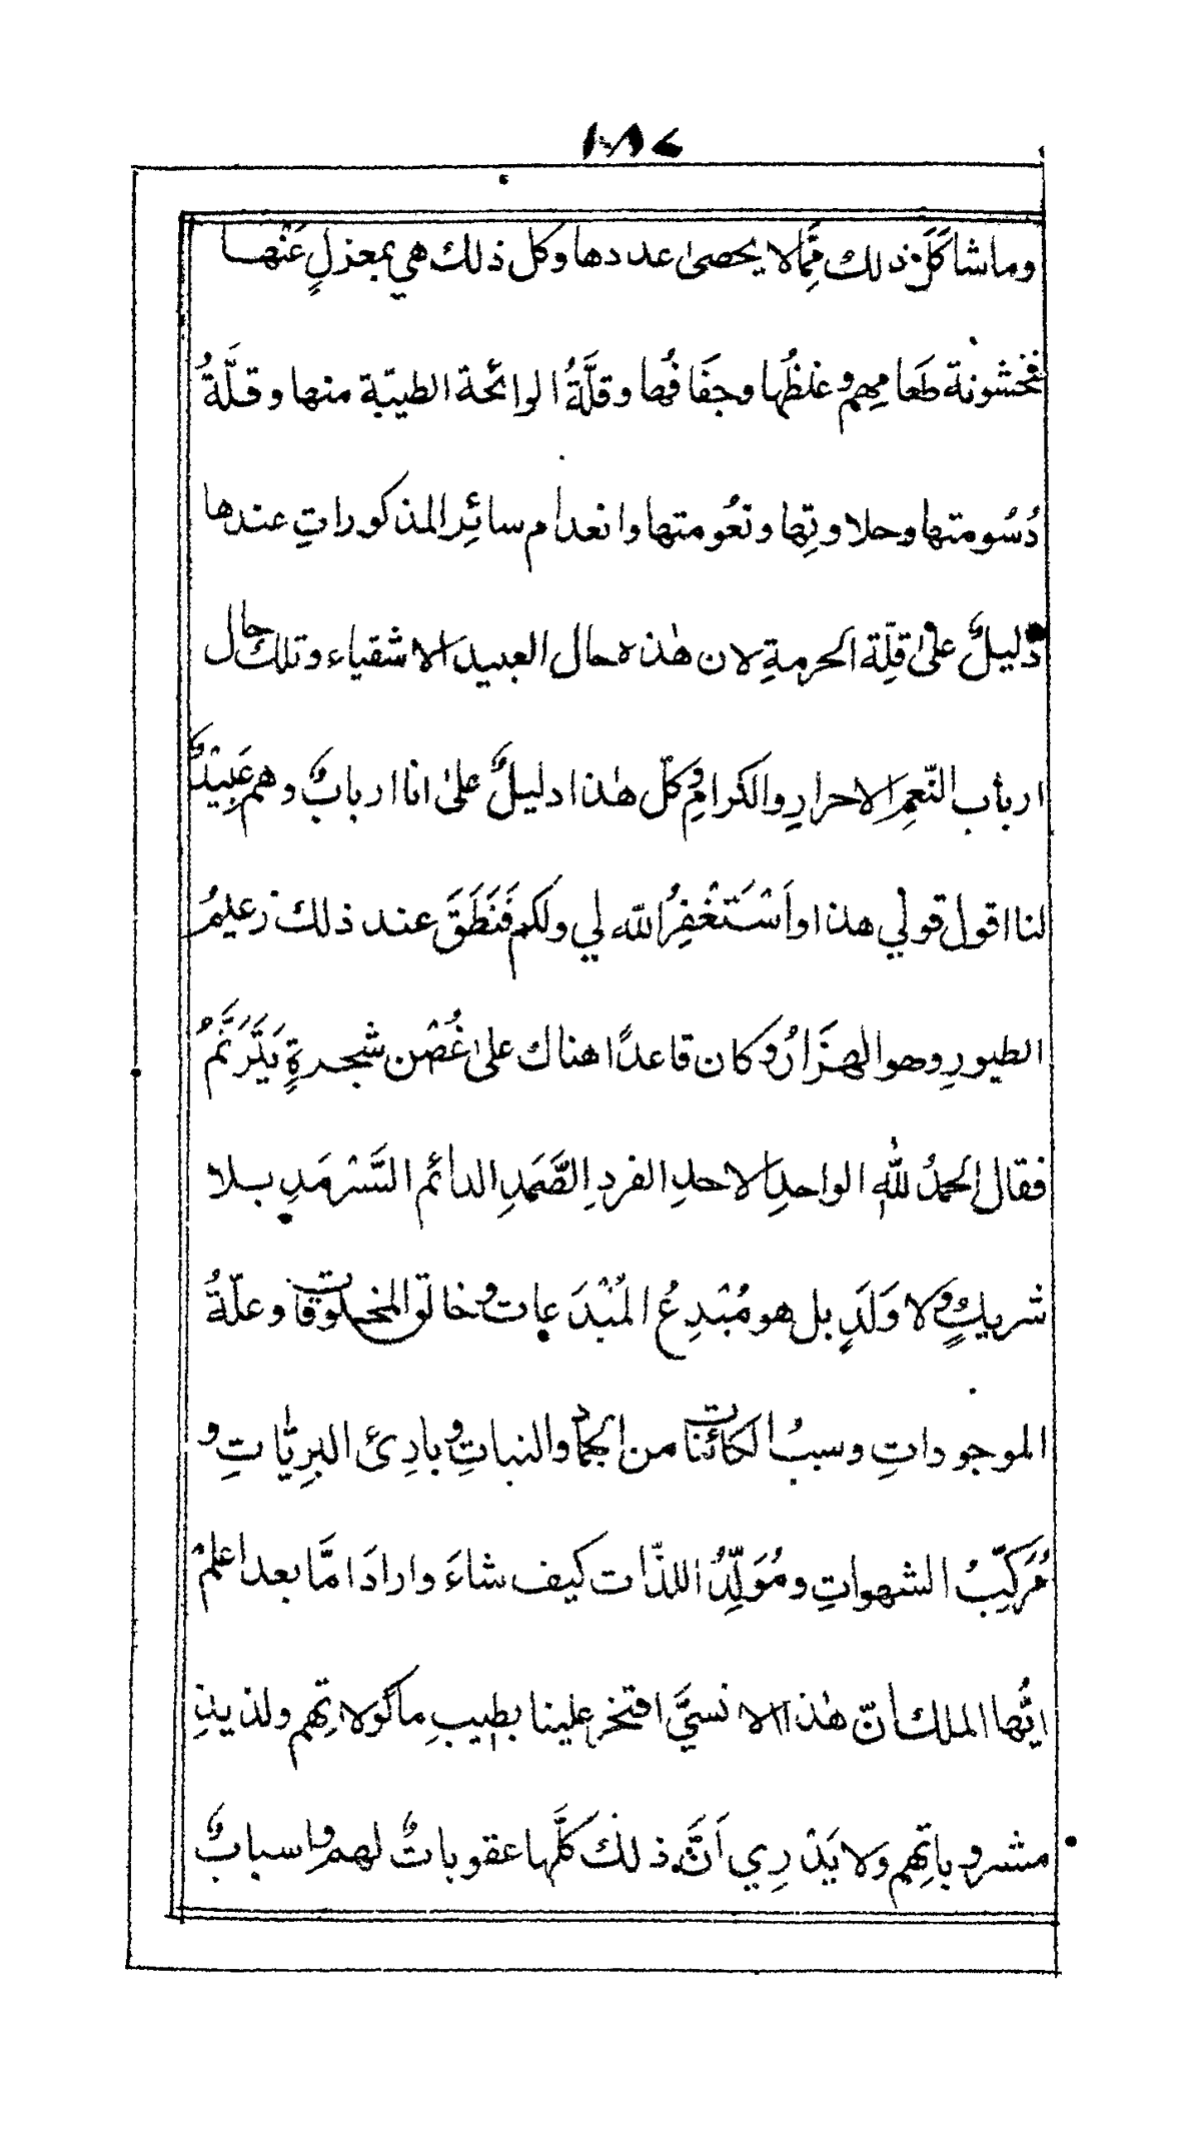 وما شاكَلَ ذلك مِمَّا لا يحصىٰ عددها وكل ذلك هي بمعزلٍ عَنْها
فخشونة طَعامِهِم وغلظُها وجفَافُها وقلَّةُ الرائحة الطيبّة منها وقلَّةُ
دُسُومتها وحلاوتِها ونعُومتها وانعدام سائِر المذكوراتِ عندها
دليلٌ علىٰ قلِّة الحرمةِ لان هٰذه حال العبيد الاشقياء وتلك حال
ارباب النّعمِ الاحرارِ والكرامِ وكلّ هٰذا دليلٌ علىٰ انا اربابٌ وهم عَبِيْدٌ
لنا اقول قولي هذا واَسْتَغْفِرُ الله لي ولكم فَنَطَقَ عند ذلك زعيمُ
الطيورِ وهو الهزَارُ وكان قاعدًا هناك علىٰ غُصْن شجرةٍ يَتَرَنَّمُ
فقال الحمدُ للهِ الواحدِ الاحدِ الفردِ الصَّمَدِ الدائم السَّرْمَدِ بلا
شريكٍ ولا وَلَدٍ بل هو مُبْدِعُ المُبْدَعات وخالق المخلوقات وعلّةُ
الموجوداتِ وسببُ الكائنات من الجماد والنباتِ وبادِئ البرِيّاتِ و
مُرَكِّبُ الشهواتِ ومُوَلِّدُ اللذّات كيف شاءَ وارادَ امَّا بعد اعلمْ
ايُّها الملك انّ هٰذا الانسيَّ افتخر علينا بطيبِ ماكولاتِهم ولذيذِ
مشروباتِهِم ولا يَدْرِي اَنَّ ذلك كلَّها عقوباتٌ لهم واسبابٌ